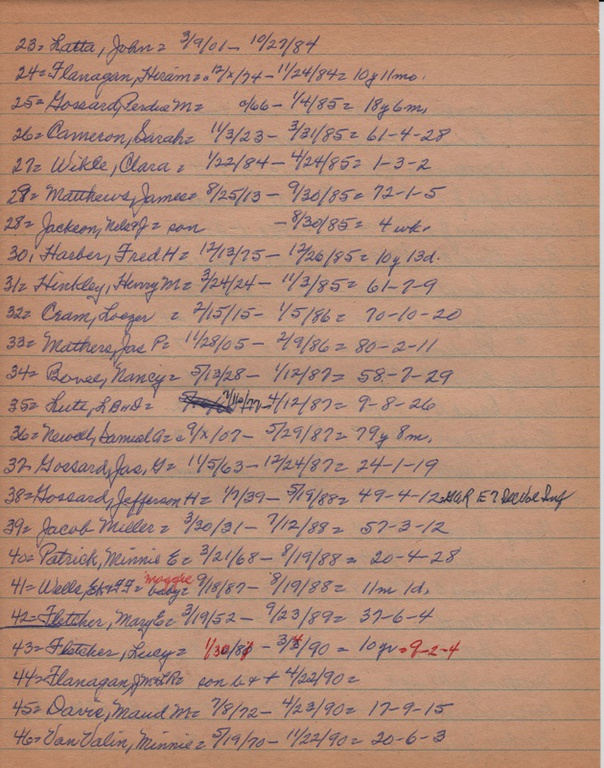 23= Latta, John = 3/9/01 - 10/27/84
24= Flanagan, Hiram = c 12/x/74 - 11/24/84 = 10y 11mo.
25= Gossard, Perdue M = c/66 - 1/4/85 = 18y 6m,
26= Cameron, Sarah = 11/3/23 - 3/31/85 = 61-4-28
27= Wikle, Clara = 1/22/84 - 4/24/85 = 1-3-2
29= Matthews, James = 8/25/13 - 9/30/85 = 72-1-5
28= Jackson, = son - 8/30/85 = 4 wk.
30, Harber, Fred H = 12/13/75 - 12/26/85 = 10y 13d.
31= Hinkley, Henry M = 3/24/24 - 11/3/85 = 61-7-9
32= Cram, = 2/15/15 - 1/5/86 = 70-10-20
33= Mathers, Jas P = 11/28/05 - 2/9/86 = 80-2-11
34= Bovee, Nancy = 5/13/28 - 1/12/87 = 58-7-29
35= Lutz, = 7/16/77 - 4/12/87 = 9-8-26
36= Newell, Samuel A = c 9/x/07 - 5/29/87 = 79y 8m,
37= Gossard, Jas, G = 11/5/63 - 12/24/87 = 24-1-19
38= Gossard, Jefferson H = 1/7/39 - 5/19/88 = 49-4-12 = GAR E 7 Inf
39= Jacob Miller = 3/30/31 - 7/12/88 = 57-3-12
40= Patrick, Minnie E = 3/21/68 - 8/19/88 = 20-4-28
41= Wells, = maggie baby = 9/18/87 - 8/19/88 = 11m 1d,
42= Fletcher, Mary E = 3/19/52 - 9/23/89 = 37-6-4
43= Fletcher, Lucy = - 3/4/90 = 10yr = 9-2-4
44= Flanagan, = son b + + 4/22/90 =
45= Davis, Maud M = 7/8/72 - 4/23/90 = 17-9-15
46= Van Valin, Minnie = 5/19/70 - 11/22/90 = 20-6-3